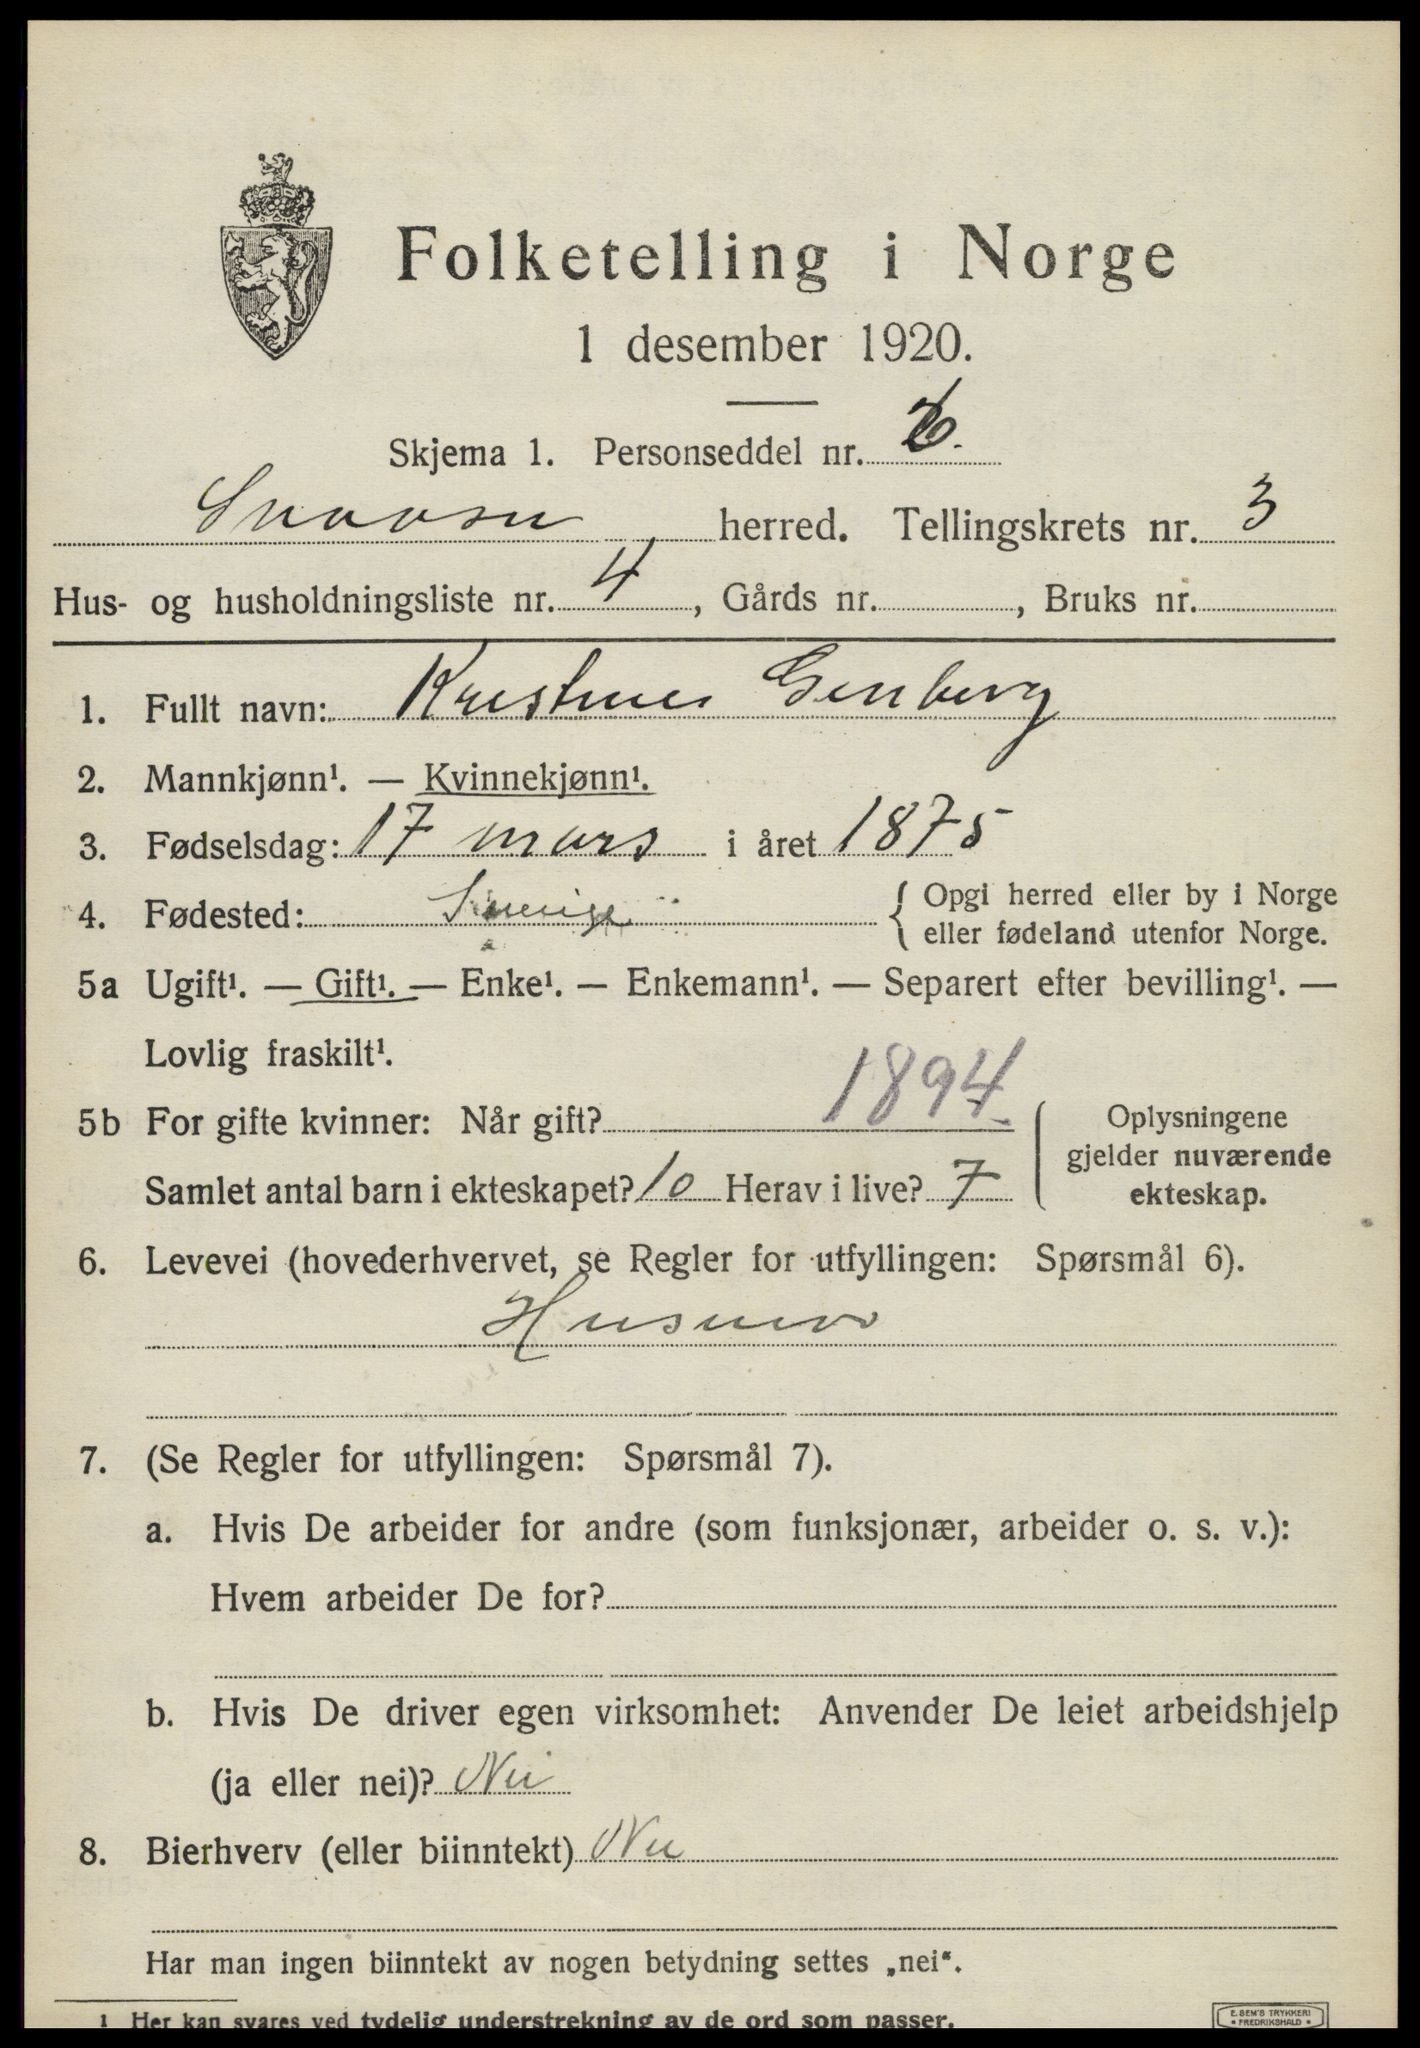 Folketelling i Norge
1 desember 1920.
Skjema 1. Personseddel nr. 6.
Snaasen herred. Tellingskrets nr. 3
Hus- og husholdningsliste nr. 4, Gårds nr. , Bruks nr.
1. Fullt navn: Kristine Genberg
2. Mannkjønn¹. — Kvinnekjønn¹.
3. Fødselsdag: 17 mars i året 1875
4. Fødested: Sverige { Opgi herred eller by i Norge
eller fødeland utenfor Norge.
5a Ugift¹. — Gift¹. — Enke¹. — Enkemann¹. — Separert efter bevilling¹. —
Lovlig fraskilt¹.
5b For gifte kvinner: Når gift? 1894.
Samlet antal barn i ekteskapet? 10 Herav i live? 7
Oplysningene
gjelder nuværende
ekteskap.
6. Levevei (hovederhvervet, se Regler for utfyllingen: Spørsmål 6).
Husmor
7. (Se Regler for utfyllingen: Spørsmål 7).
a. Hvis De arbeider for andre (som funksjonær, arbeider o. s. v.):
Hvem arbeider De for?
b. Hvis De driver egen virksomhet: Anvender De leiet arbeidshjelp
(ja eller nei)? Nei
8. Bierhverv (eller biinntekt) Nei
Har man ingen biinntekt av nogen betydning settes „nei“.
1 Her kan svares ved tydelig understrekning av de ord som passer.
E. SEM'S TRYKKERI
FREDRIKSHALD